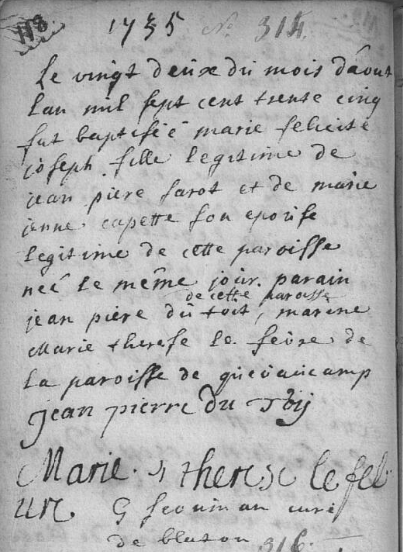 118
1735 N. 314.
le vingt deux du mois d'aout
lan mil sept cent trente cinq
fut baptisée marie felicité
joseph fille legitime de
jean piere farot et de marie
jenne capette son epouse
legitime de cette paroisse
neé le même jour. parain
de cette paroisse
jean piere du toit, marine
Marie therese le febre de
la paroisse de
jean pierre du
Marie therese le feb
ure
G curé
de
316.